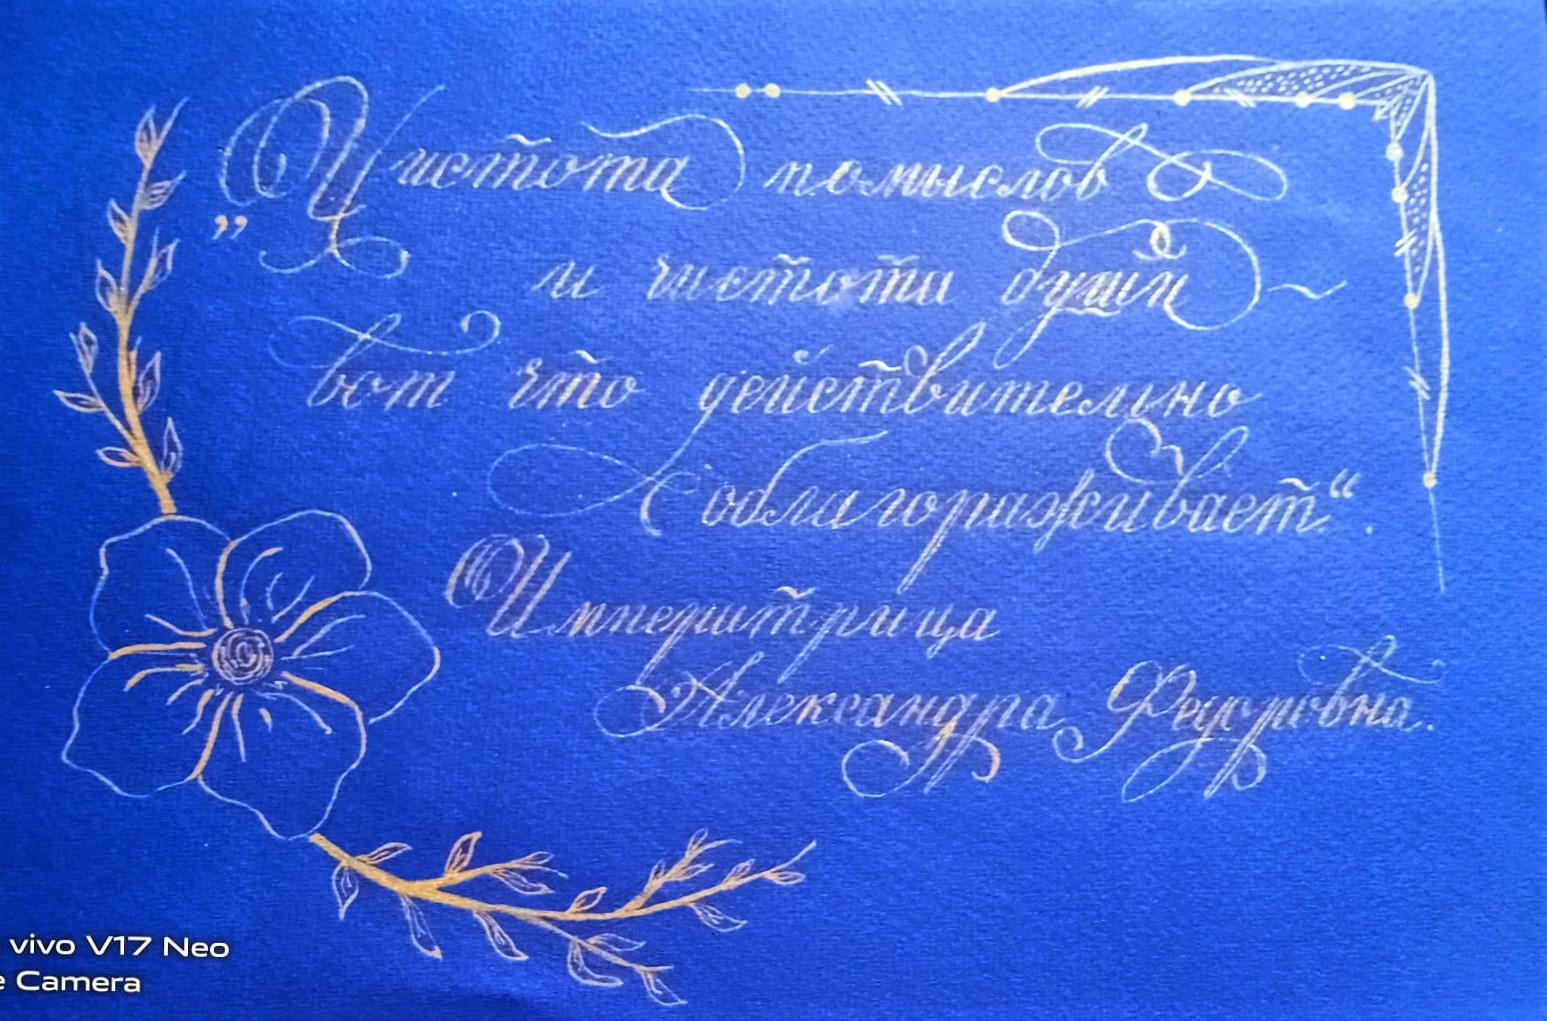 „Чистота помыслов
и чистота души ~
вот что действительно
облагораживает“.
Императрица
Александра Федоровна.
vivo V17 Neo
e Camera